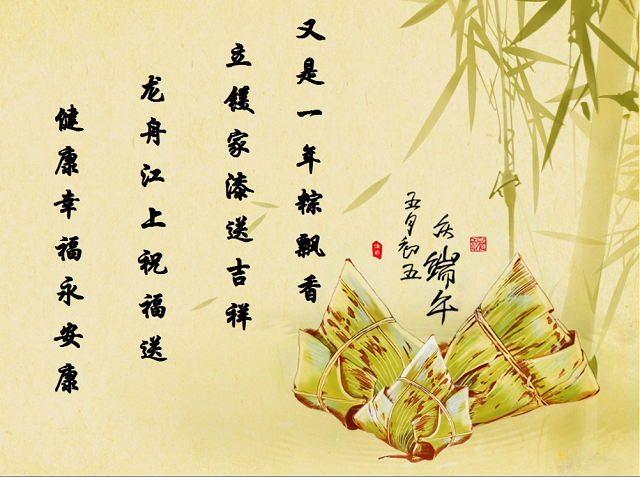 又是一年粽飘香
立镁家漆送吉祥
龙舟江上祝福送
健康幸福永安康
庆端午
五月初五